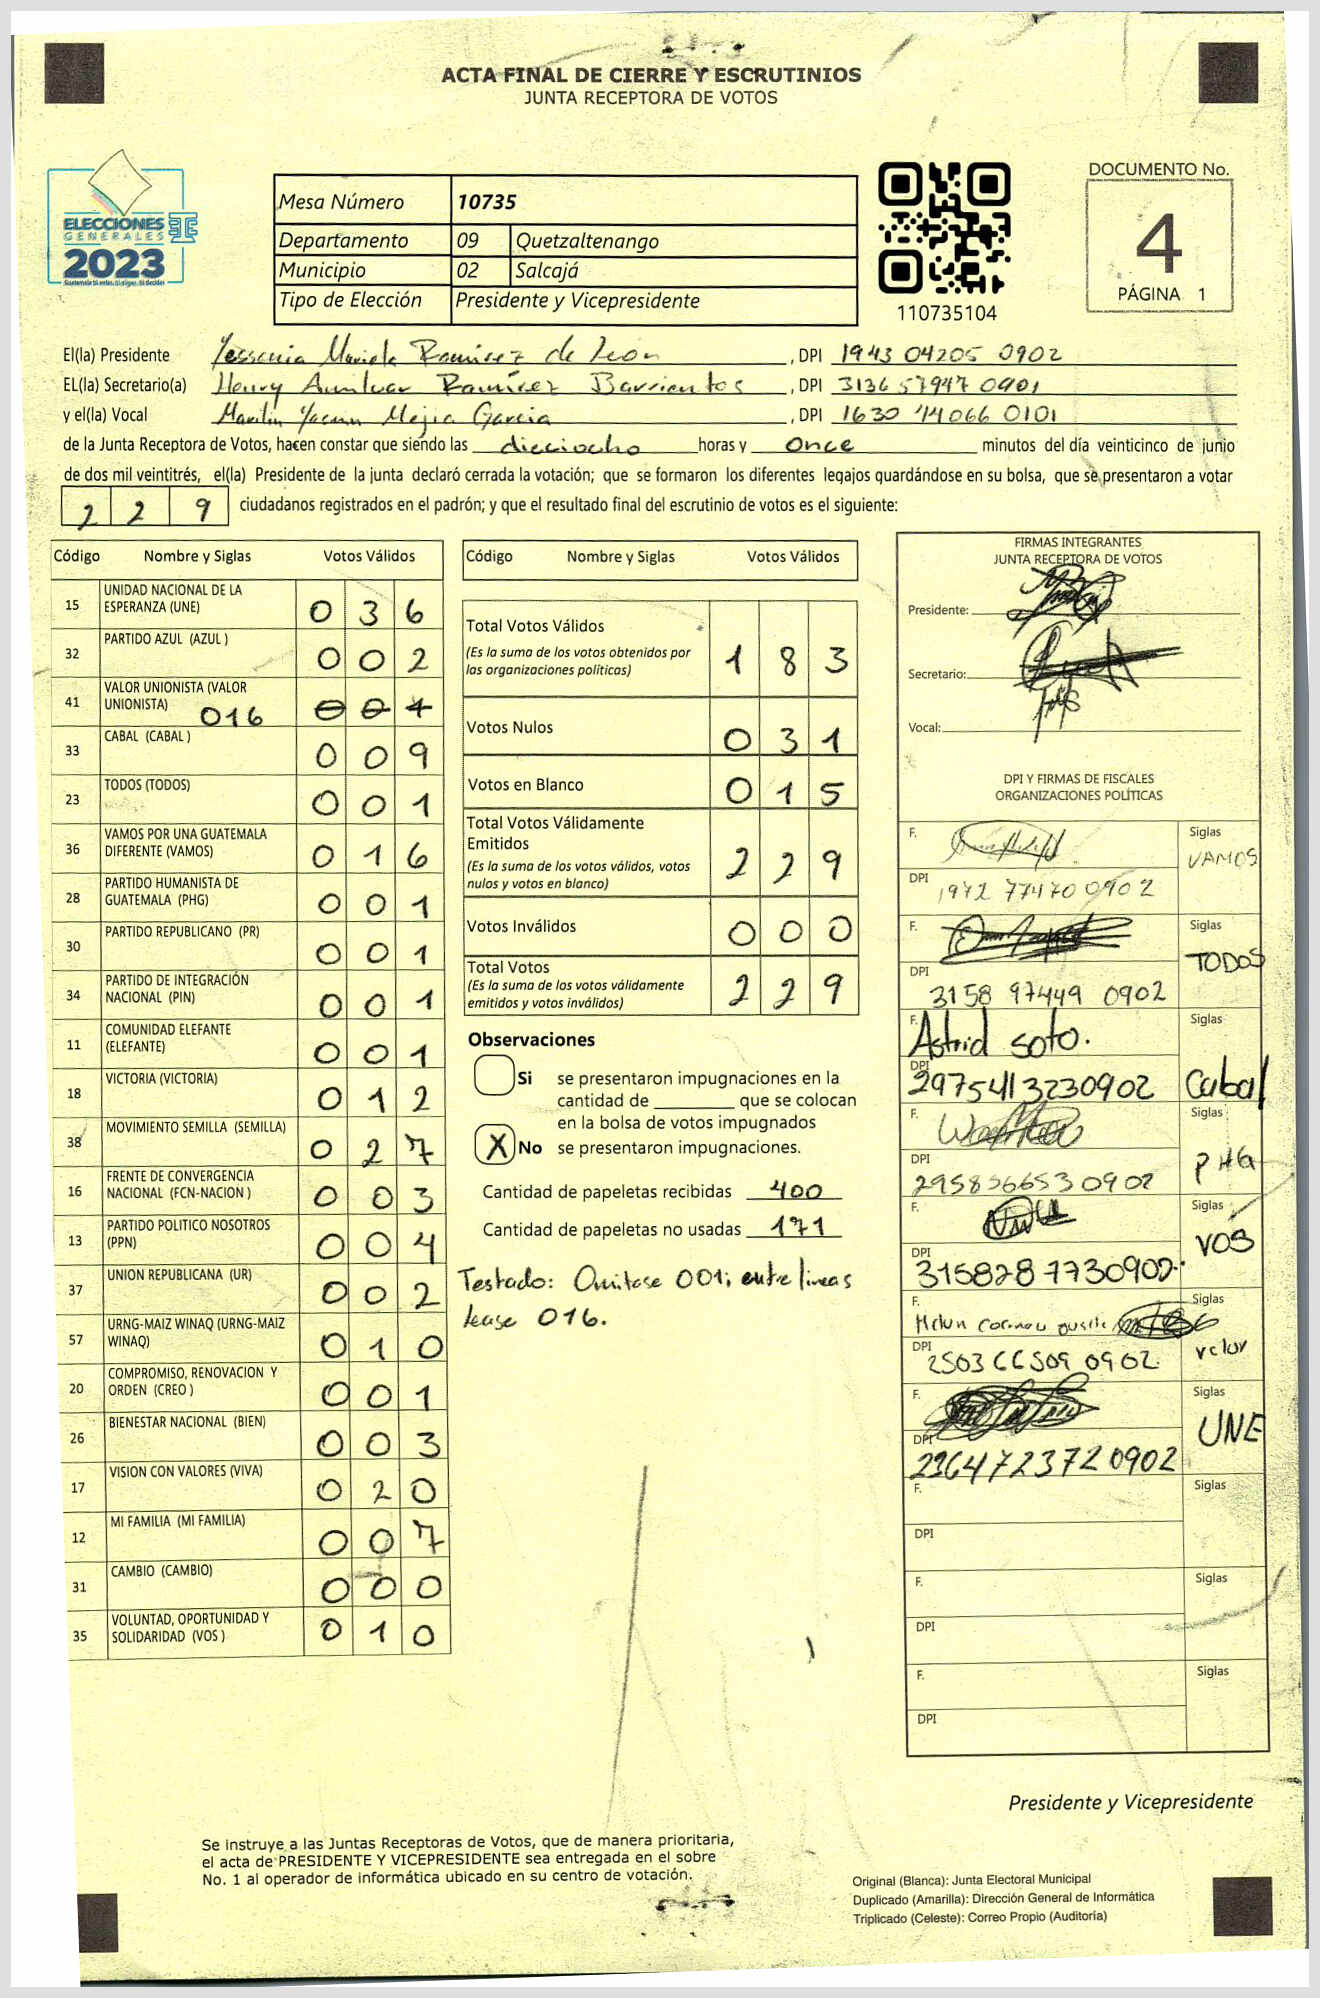 ACTA FINAL DE CIERRE Y ESCRUTINIOS
JUNTA RECEPTORA DE VOTOS
ELECCIONES
GENERALES
2023
Mesa Número 10735
Departamento 09 Quetzaltenango
Municipio 02 Salcajá
Tipo de Elección Presidente y Vicepresidente
110735104
DOCUMENTO No.
4
PÁGINA 1
El(la) Presidente Yessenia Mariela Ramírez de León, DPI 1943 04205 0902
EL(la) Secretario(a) Henry Amilcar Ramírez Barrientos, DPI 3136 57947 0901
y el(la) Vocal Marilin Yasmin Mejia Garcia, DPI 1630 44066 0101
de la Junta Receptora de Votos, hacen constar que siendo las dieciocho horas y once minutos del día veinticinco de junio
de dos mil veintitrés, el(la) Presidente de la junta declaró cerrada la votación; que se formaron los diferentes legajos guardándose en su bolsa, que se presentaron a votar
229 ciudadanos registrados en el padrón; y que el resultado final del escrutinio de votos es el siguiente:
Código Nombre y Siglas Votos Válidos
15 UNIDAD NACIONAL DE LA ESPERANZA (UNE) 036
32 PARTIDO AZUL (AZUL ) 002
41 VALOR UNIONISTA (VALOR UNIONISTA) 016 001
33 CABAL (CABAL ) 009
23 TODOS (TODOS) 001
36 VAMOS POR UNA GUATEMALA DIFERENTE (VAMOS) 016
28 PARTIDO HUMANISTA DE GUATEMALA (PHG) 001
30 PARTIDO REPUBLICANO (PR) 001
34 PARTIDO DE INTEGRACIÓN NACIONAL (PIN) 001
11 COMUNIDAD ELEFANTE (ELEFANTE) 001
18 VICTORIA (VICTORIA) 012
38 MOVIMIENTO SEMILLA (SEMILLA) 027
16 FRENTE DE CONVERGENCIA NACIONAL (FCN-NACION ) 003
13 PARTIDO POLITICO NOSOTROS (PPN) 004
37 UNION REPUBLICANA (UR) 002
57 URNG-MAIZ WINAQ (URNG-MAIZ WINAQ) 010
20 COMPROMISO, RENOVACION Y ORDEN (CREO ) 001
26 BIENESTAR NACIONAL (BIEN) 003
17 VISION CON VALORES (VIVA) 020
12 MI FAMILIA (MI FAMILIA) 007
31 CAMBIO (CAMBIO) 000
35 VOLUNTAD, OPORTUNIDAD Y SOLIDARIDAD (VOS ) 010
Código Nombre y Siglas Votos Válidos
Total Votos Válidos 183
(Es la suma de los votos obtenidos por
las organizaciones políticas)
Votos Nulos 031
Votos en Blanco 015
Total Votos Válidamente
Emitidos 229
(Es la suma de los votos válidos, votos
nulos y votos en blanco)
Votos Inválidos 000
Total Votos 229
(Es la suma de los votos válidamente
emitidos y votos inválidos)
Observaciones
Si se presentaron impugnaciones en la
cantidad de ________ que se colocan
en la bolsa de votos impugnados
X No se presentaron impugnaciones.
Cantidad de papeletas recibidas 400
Cantidad de papeletas no usadas 171
Testado: Omitase 001; entre lineas
lease 016.
FIRMAS INTEGRANTES
JUNTA RECEPTORA DE VOTOS
Presidente:
Secretario:
Vocal:
DPI Y FIRMAS DE FISCALES
ORGANIZACIONES POLÍTICAS
F. Siglas VAMOS
DPI 1972 77470 0902
F. Siglas TODOS
DPI 3158 97449 0902
F. Astrid soto. Siglas Cabal
DPI 2975413230902
F. Siglas PHG
DPI 2958566530902
F. Siglas VOS
DPI 3158287730902
F. Siglas valor
DPI 2503 66509 0902
F. Siglas UNE
DPI 2364723720902
F. Siglas
DPI
F. Siglas
DPI
F. Siglas
DPI
Presidente y Vicepresidente
Se instruye a las Juntas Receptoras de Votos, que de manera prioritaria,
el acta de PRESIDENTE Y VICEPRESIDENTE sea entregada en el sobre
No. 1 al operador de informática ubicado en su centro de votación.
Original (Blanca): Junta Electoral Municipal
Duplicado (Amarilla): Dirección General de Informática
Triplicado (Celeste): Correo Propio (Auditoría)